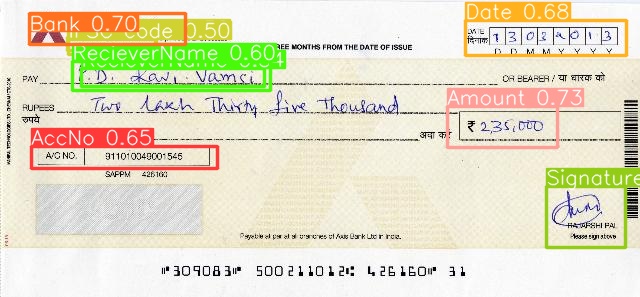 Bank 0.70
Code 0.50
Date 0.68
RecieverName 0.60
THREE MONTHS FROM THE DATE OF ISSUE
DATE
दिनांक
1 3 0 3 2 0 1 3
D D M M Y Y Y Y
PAY P.D. Ravi Vamsi OR BEARER / या धारक को
RUPEES Two lakh Thirty five Thousand
रुपये
Amount 0.73
अदा करें
₹ 235,000
AccNo 0.65
A/C NO. 911010049001545
SAPPM 426160
Signature
RAJARSHI PAL
Please sign above
Payable at par at all branches of Axis Bank Ltd in India.
"309083" 500211012: 426160" 31